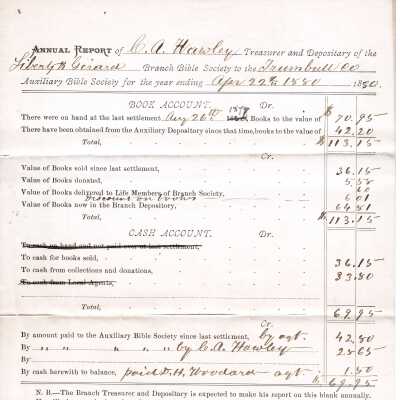 ANNUAL REPORT of C. A. Hawley Treasurer and Depositary of the
Liberty & Girard Branch Bible Society to the Trumbull Co
Auxiliary Bible Society for the year ending Apr 22th 1880 1880.
BOOK ACCOUNT. Dr.
There were on hand at the last settlement Aug 26th 1879 Books to the value of $ 70.95
There have been obtained from the Auxiliary Depository since that time, books to the value of 42.20
Total, $ 113.15
Cr.
Value of Books sold since last settlement, 36.15
Value of Books donated, 5.58
Value of Books delivered to Life Members of Branch Society, 60
Discount on books 6.01
Value of Books now in the Branch Depository, 64.81
Total, $ 113.15
CASH ACCOUNT. Dr.
To cash on hand and not paid over at last settlement,
To cash for books sold, 36.15
To cash from collections and donations, 33.80
To cash from Local Agents,
Total, 69.95
Cr.
By amount paid to the Auxiliary Bible Society since last settlement, by agt. 42.80
By " " " " " by C. A. Hawley 25.65
By
By cash herewith to balance, paid H. Woodard agt 1.50
$ 69.95
N. B.—The Branch Treasurer and Depositary is expected to make his report on this blank annually.